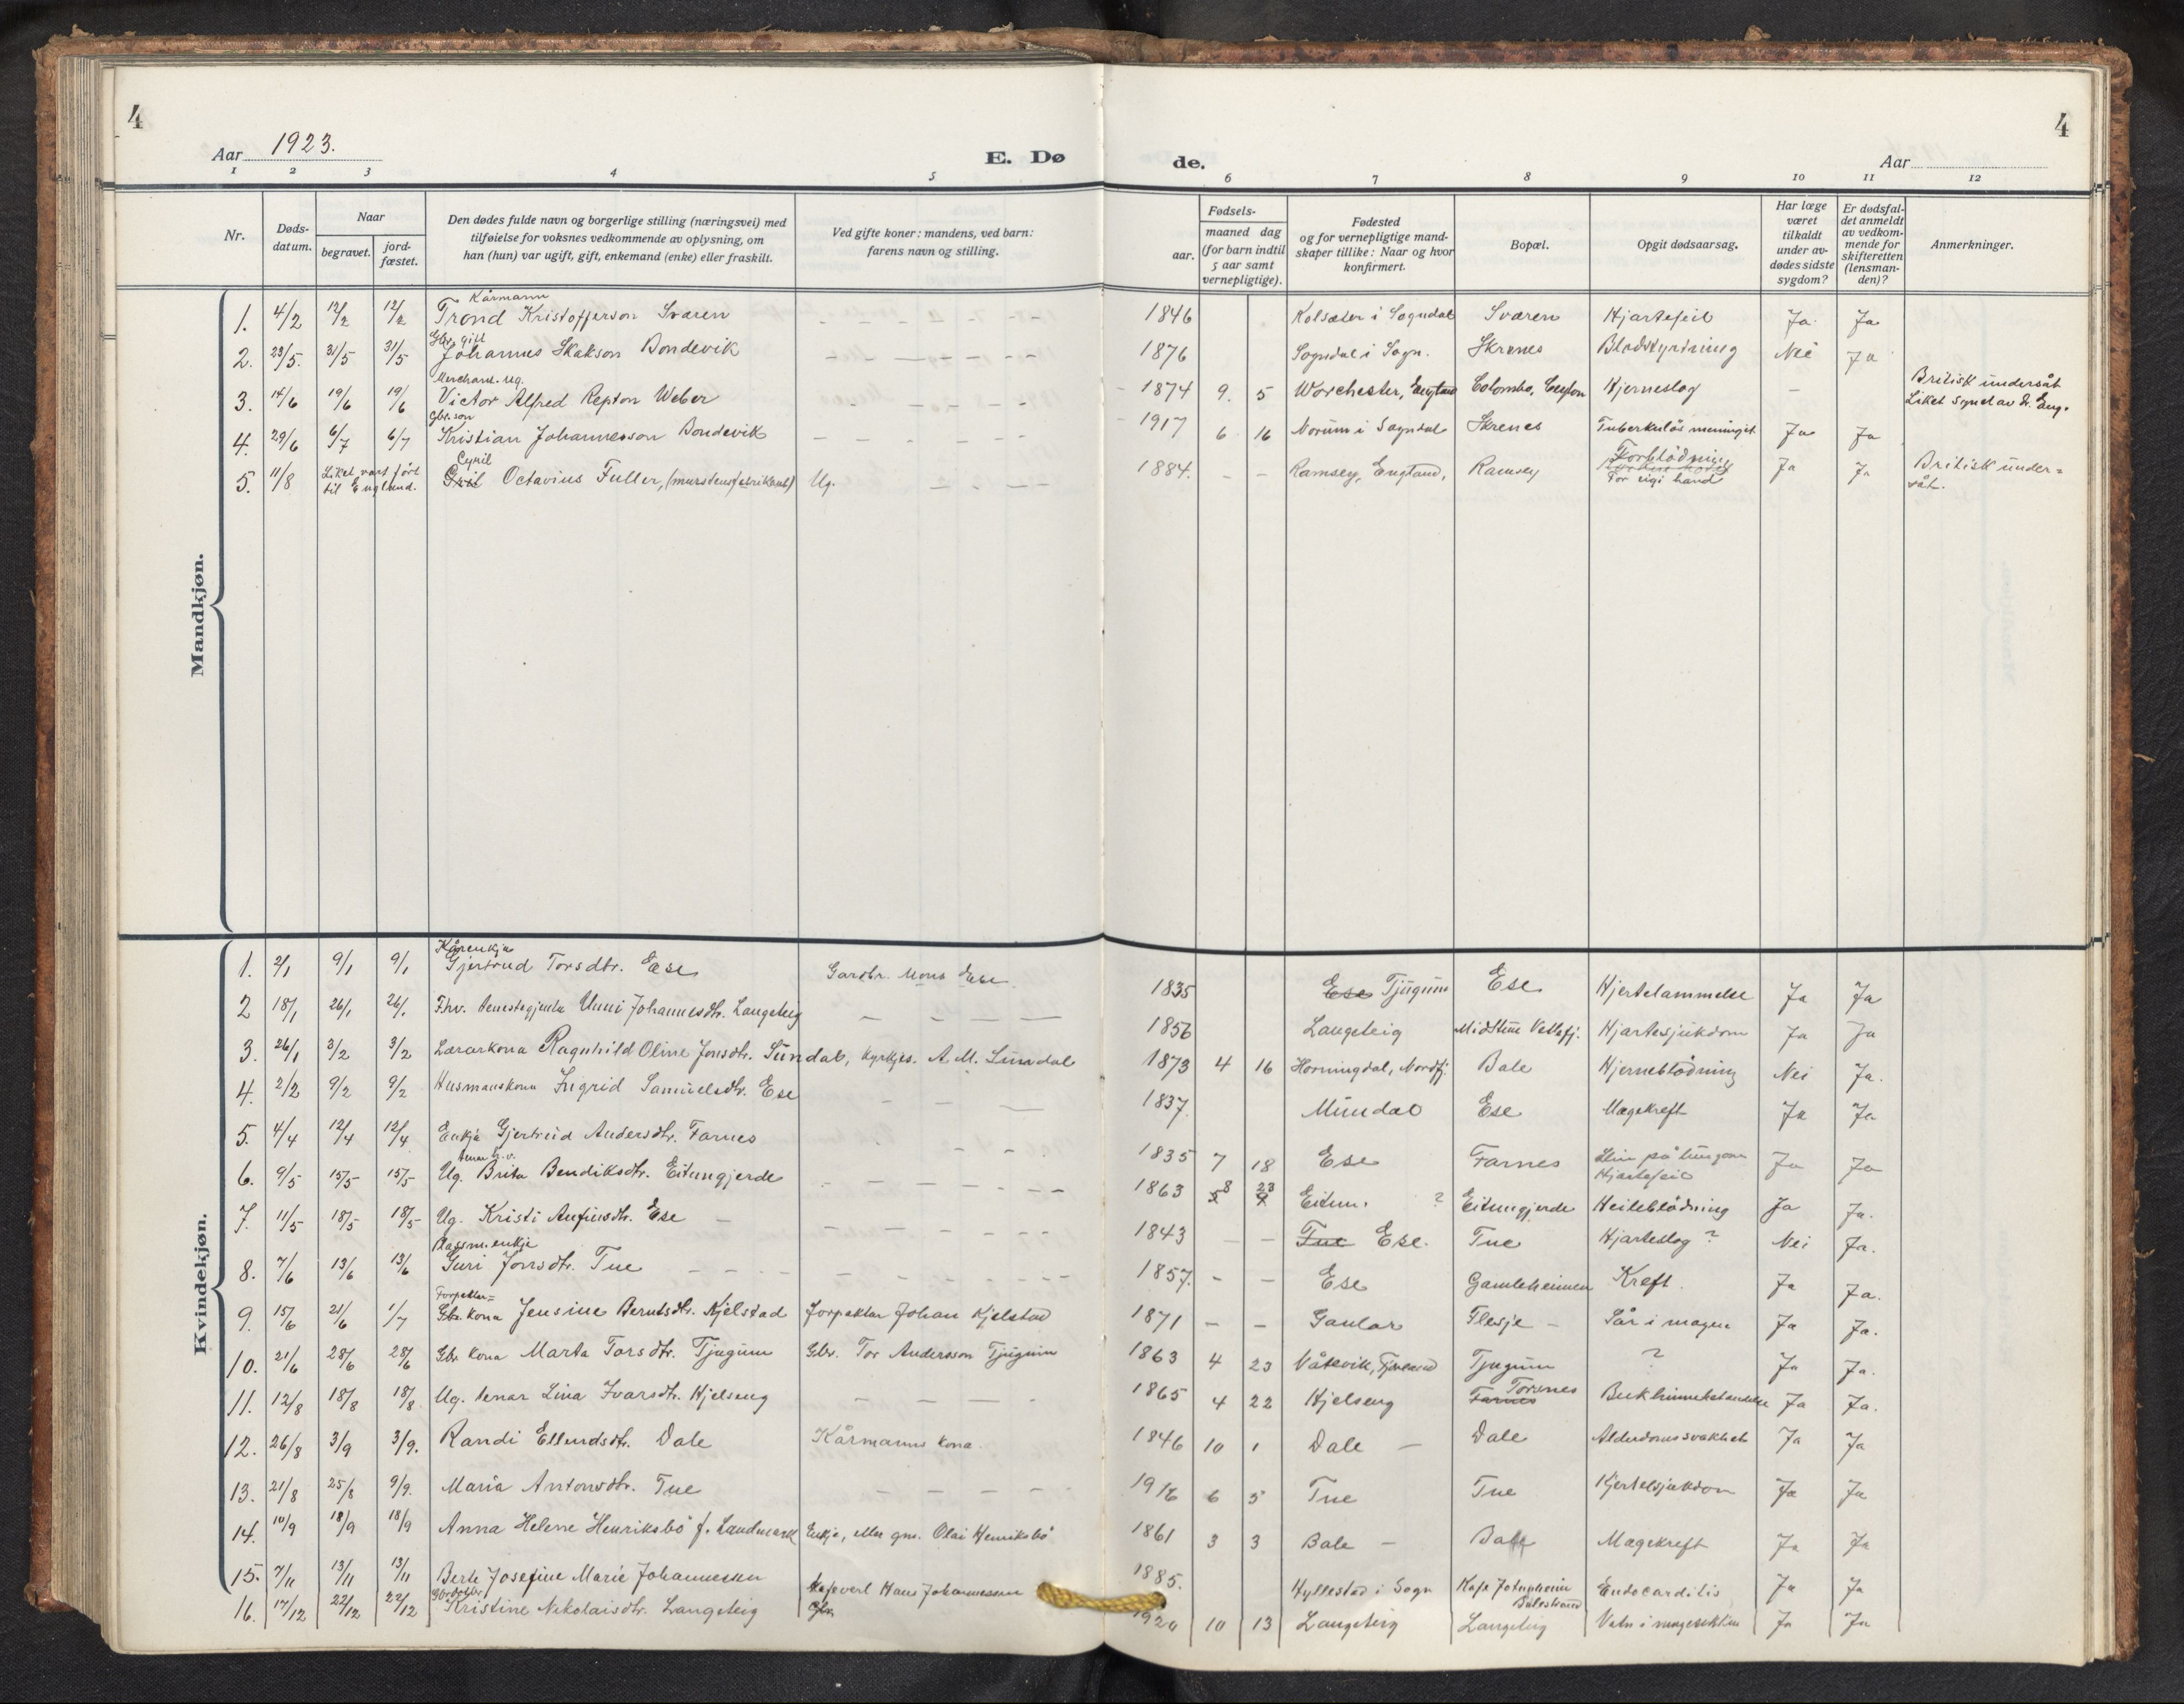 4
4
Aar 1923.
E. Dø
de.
Aar
1 2 3 4 5 6 7 8 9 10 11 12
Nr.
Døds-datum.
Naar
begravet.
jord-fæstet.
Den dødes fulde navn og borgerlige stilling (næringsvei) med
tilføielse for voksnes vedkommende av oplysning, om
han (hun) var ugift, gift, enkemand (enke) eller fraskilt.
Ved gifte koner: mandens, ved barn:
farens navn og stilling.
Fødsels-
aar.
maaned dag
(for barn indtil
5 aar samt
vernepligtige).
Fødested
og for vernepligtige mand-
skaper tillike: Naar og hvor
konfirmert.
Bopæl.
Opgit dødsaarsag.
Har læge
været
tilkaldt
under av-
dødes sidste
sygdom?
Er dødsfal-
det anmeldt
av vedkom-
mende for
skifteretten
(lensman-
den)?
Anmerkninger.
Mandkjøn.
Kårmann
1. 4/2 12/2 12/2 Trond Kristofferson Sværen 1846 Kolsæter i Sogndal Sværen Hjartefeil Ja Ja
Gbr. gift
2. 23/5. 31/5 31/5 Johannes Skakson Bondevik 1876 Sogndal i Sogn. Skrenes Blodstyrtning Nei Ja
Merchant. ug.
3. 14/6 19/6 19/6 Victor Alfred Repton Weber 1874 9. 5 Worchester, England Colombo, Ceylon Hjerneslag - Britisk undersåt
Liket synet av dr. Eng.
Gbr. son
4. 29/6 6/7 6/7 Kristian Johannesson Bondevik 1917 6 16 Norum i Sogndal Skrenes Tuberkuløs meningit Ja Ja
Cyril
5. 11/8 Liket vart ført til England. Octavius Fuller, (murstensfabrikant) Ug. 1884. - - Ramsey, England, Ramsey Forblødning
For eigi hand Ja Ja Britisk under=
såt.
Kvindekjøn.
Kårenkja
1. 2/1 9/1 9/1 Gjertrud Torsdtr. Ese Gardbr. Mons Ese. 1835 Ese Tjugum Ese Hjertelammelse Ja Ja
2 18/1 26/1 26/1 Fhv. tenestegjenta Unni Johannesdtr. Langeteig 1856 Langeteig Midttun Vetlefj. Hjartesjukdom Ja Ja
3. 26/1 3/2 3/2 Lærarkona Ragnhild Oline Jonsdtr. Sundal, kyrkjes. A. M. Sundal 1873 4 16 Horningdal, Nordfj. Bale Hjerneblødning Nei Ja.
4. 2/2 9/2 9/2 Husmanskona Ingrid Samuelsdtr. Ese 1837. Mundal Ese Magekreft Ja Ja
5. 4/4 12/4 12/4 Enkja Gjertrud Andersdtr. Farnes 1835 7 18 Ese Farnes Slim på lungaan
Hjartefeil Ja Ja
6. 9/5 15/5 15/5 Ug. Brita Bendiksdtr. Eitungjerde 1863 8 23 Eitun. ? Eitungjerde Heileblødning Ja Ja.
7. 11/5 18/5 18/5 Ug. Kristi Anfinsdtr. Ese 1843 - - Tue Ese. Tue Hjarteslag ? Nei Ja.
Plassm. enkje
8. 7/6 13/6 13/6 Guri Jonsdtr. Tue 1857. - - Ese Gamleheimen Kreft. Ja Ja.
Forpaktar=
9. 15/6 21/6 1/7 Gbr. kona Jensine Berntsdtr. Kjelstad Forpaktar Johan Kjelstad 1871 - - Gaular Flesje - Sår i magen Ja Ja.
10. 21/6 28/6 28/6 Gbr kona Marta Torsdtr. Tjugum Gbr. Tor Andersson Tjugum 1863 4 23 Våtevik, Fjærland Tjugum ? Ja Ja.
11. 12/8 18/8 18/8 Ug. tenar Lina Ivarsdtr. Hjelseng 1865 4 22 Hjelseng Farnes Torsnes Bukhinnebetændelse Ja Ja.
12. 26/8 3/9 3/9. Randi Ellendsdtr. Dale Kårmanns kona. 1846 10 1 Dale - Dale Alderdomssvakhet Ja Ja
13. 21/8 25/8 9/9. Maria Antonsdtr. Tue 1916 6 5 Tue Tue Kjertelsjukdom Ja Ja
14. 10/9 18/9 18/9 Anna Helene Henriksbø f. Landmark Enkje, etter gm. Olai Henriksbø 1861 3 3 Bale - Bale Magekreft Ja Ja
15. 7/11 13/11 13/11 Berte Josefine Marie Johannessen Kafeverl Hans Johannessen 1885. Hyllestad i Sogn Kafe Jotunheim
Balestrand Endocarditis Ja Ja
16. 17/12 22/12 22/12 Kristine Nikolaisdtr. Langeteig Gbr. 1920 10 13 Langeteig Langeteig Ja Ja